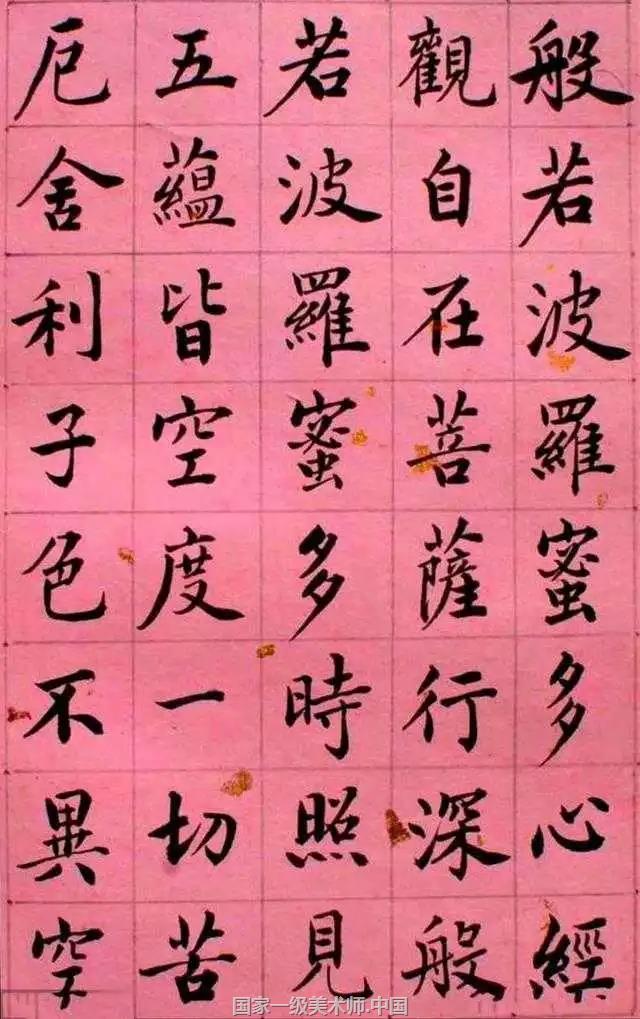 般若波羅蜜多心經
觀自在菩薩行深般
若波羅蜜多時照見
五蘊皆空度一切苦
厄舍利子色不異空
国家一级美术师.中国